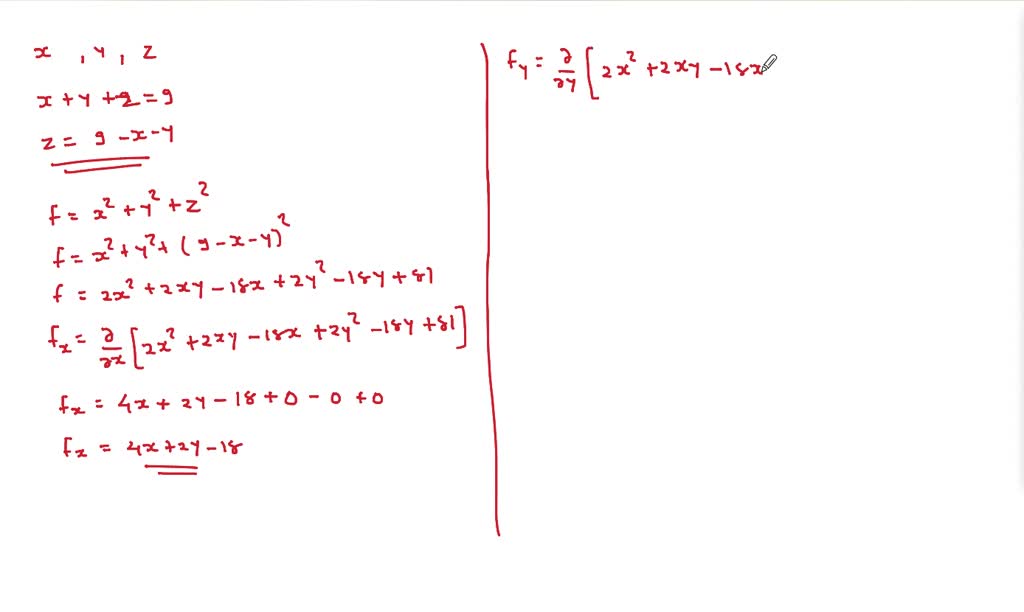 x , y , z
x + y + z = 9
z = 9 - x - y
f = x² + y² + z²
f = x² + y² + (9 - x - y)²
f = 2x² + 2xy - 18x + 2y² - 18y + 81
fx = ∂/∂x [2x² + 2xy - 18x + 2y² - 18y + 81]
fx = 4x + 2y - 18 + 0 - 0 + 0
fx = 4x + 2y - 18
fy = ∂/∂y [2x² + 2xy - 18x